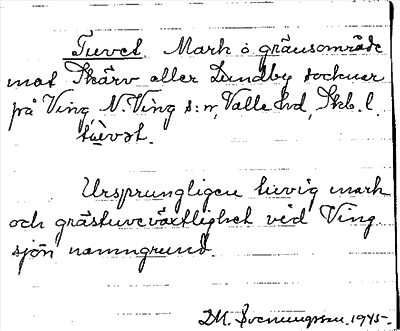 Tuvet. Mark o gränsområde
mot Skärv eller Lundby socknar
på Ving, N. Ving s:n, Valle hd, Skb. l.
tùvət.
Ursprungligen tuvig mark
och grästuveväxtlighet ved Ving
sjön namngrund.
D.M. Svenungsson 1945.